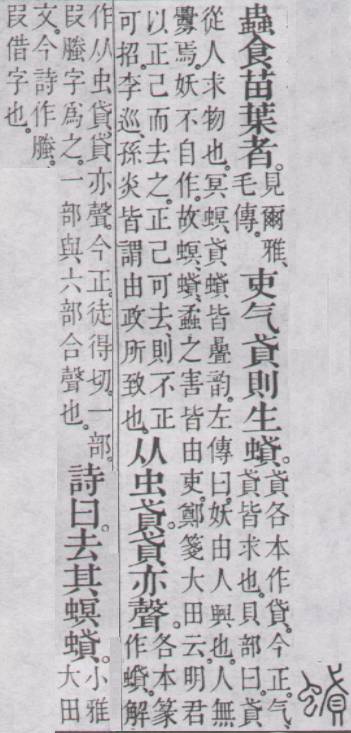 蟘
蟲食苗葉者。見爾雅、毛傳。吏气貣則生蟘。貣各本作貸。今正。气、貣皆求也。貝部曰。貣
從人求物也。冥螟、貣蟘皆疊韵。左傳曰。妖由人興也。人無
釁焉。妖不自作。故螟、蟘、蟊之害皆由吏。鄭箋大田云。明君
以正己而去之。正己可去。則不正
可招。李巡、孫炎皆謂由政所致也。从虫貣。貣亦聲。各本篆作蟘。解
作从虫貸。貸亦聲。今正。徒得切。一部。
叚螣字爲之。一部與六部合聲也。詩曰。去其螟蟘。小雅大田
文。今詩作螣。
叚借字也。